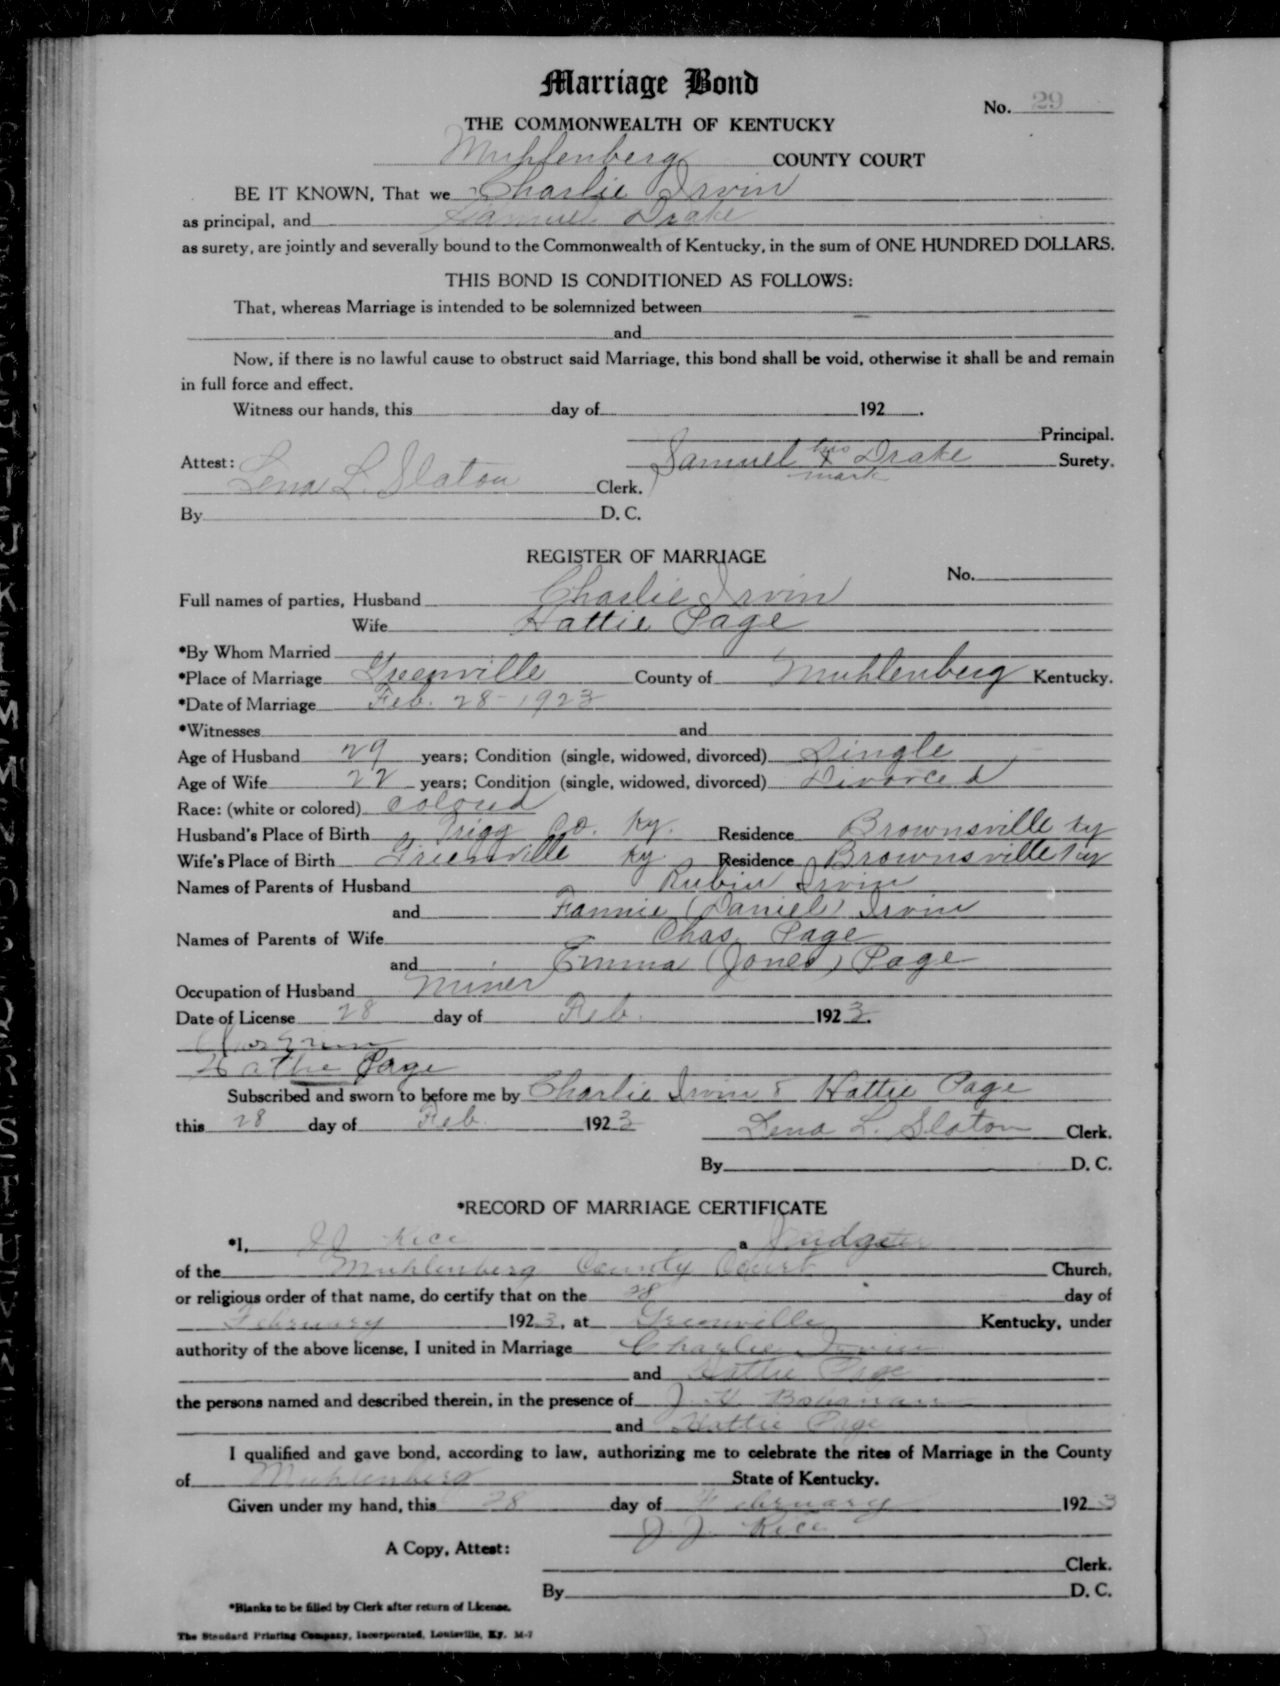 Marriage Bond
No. 29
THE COMMONWEALTH OF KENTUCKY
Muhlenberg COUNTY COURT
BE IT KNOWN, That we Charlie Irvin
as principal, and Samuel Drake
as surety, are jointly and severally bound to the Commonwealth of Kentucky, in the sum of ONE HUNDRED DOLLARS.
THIS BOND IS CONDITIONED AS FOLLOWS:
That, whereas Marriage is intended to be solemnized between
and
Now, if there is no lawful cause to obstruct said Marriage, this bond shall be void, otherwise it shall be and remain
in full force and effect.
Witness our hands, this day of 192 .
Principal.
Attest: Samuel his X mark Drake Surety.
Lena L. Slaton Clerk.
By D. C.
REGISTER OF MARRIAGE
No.
Full names of parties, Husband Charlie Irvin
Wife Hattie Page
*By Whom Married
*Place of Marriage Greenville County of Muhlenberg Kentucky.
*Date of Marriage Feb. 28 - 1923
*Witnesses and
Age of Husband 29 years; Condition (single, widowed, divorced) Single
Age of Wife 22 years; Condition (single, widowed, divorced) Divorced
Race: (white or colored) Colored
Husband's Place of Birth Trigg Co. Ky. Residence Brownsville Ky
Wife's Place of Birth Greenville Ky Residence Brownsville Ky
Names of Parents of Husband Rubin Irvin
and Fannie (Daniel) Irvin
Names of Parents of Wife Chas. Page
and Emma (Jones) Page
Occupation of Husband Miner
Date of License 28 day of Feb. 1923.
Hattie Page
Subscribed and sworn to before me by Charlie Irvin & Hattie Page
this 28 day of Feb. 1923
Lena L. Slaton Clerk.
By D. C.
*RECORD OF MARRIAGE CERTIFICATE
*I, J J Rice a Judge
of the Muhlenberg County Court Church,
or religious order of that name, do certify that on the 28 day of
February 1923, at Greenville Kentucky, under
authority of the above license, I united in Marriage Charlie Irvin
and Hattie Page
the persons named and described therein, in the presence of J. H. Bohanan
and Hattie Page
I qualified and gave bond, according to law, authorizing me to celebrate the rites of Marriage in the County
of Muhlenberg State of Kentucky.
Given under my hand, this 28 day of February 1923
J. J. Rice
A Copy, Attest:
Clerk.
By D. C.
*Blanks to be filled by Clerk after return of License.
The Standard Printing Company, Incorporated, Louisville, Ky. M-7